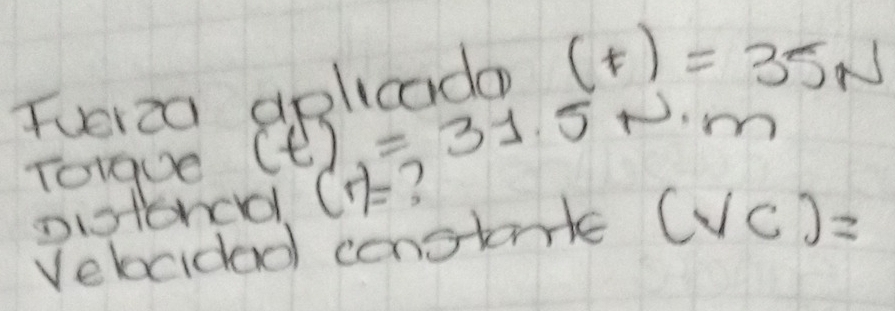 Fuerza aplicada (f) = 35N
Torque (t) = 31.5 N.m
Distancia (r)=?
Velocidad constante (VC)=